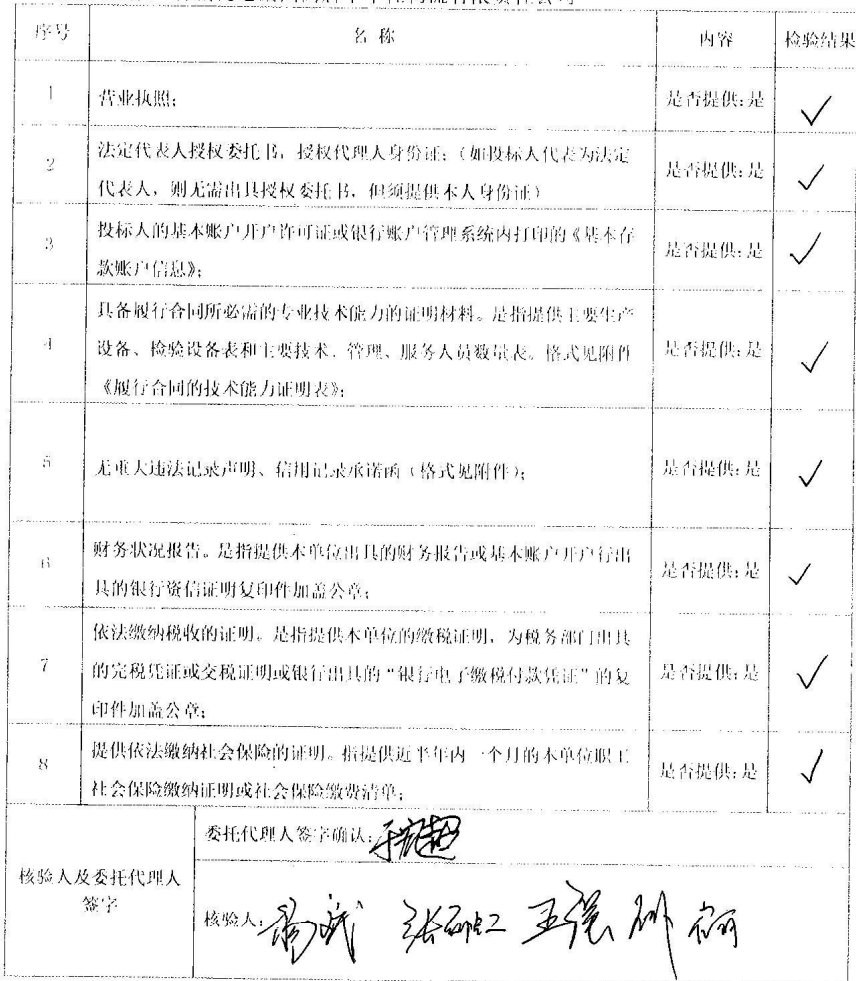 有限责任公司
序号 名称 内容 检验结果
1 营业执照; 是否提供:是 ✓
2 法定代表人授权委托书,授权代理人身份证;(如投标人代表为法定
代表人,则无需出具授权委托书,但须提供本人身份证) 是否提供:是 ✓
3 投标人的基本账户开户许可证或银行账户管理系统内打印的《基本存
款账户信息》; 是否提供:是 ✓
4 具备履行合同所必需的专业技术能力的证明材料。是指提供主要生产
设备、检验设备表和主要技术、管理、服务人员数量表。格式见附件
《履行合同的技术能力证明表》; 是否提供:是 ✓
5 无重大违法记录声明、信用记录承诺函(格式见附件); 是否提供:是 ✓
6 财务状况报告。是指提供本单位出具的财务报告或基本账户开户行出
具的银行资信证明复印件加盖公章; 是否提供:是 ✓
7 依法缴纳税收的证明。是指提供本单位的缴税证明,为税务部门出具
的完税凭证或交税证明或银行出具的“银行电子缴税付款凭证”的复
印件加盖公章; 是否提供:是 ✓
8 提供依法缴纳社会保险的证明。指提供近半年内一个月的本单位职工
社会保险缴纳证明或社会保险缴费清单; 是否提供:是 ✓
核验人及委托代理人
签字
委托代理人签字确认:
核验人: 王强